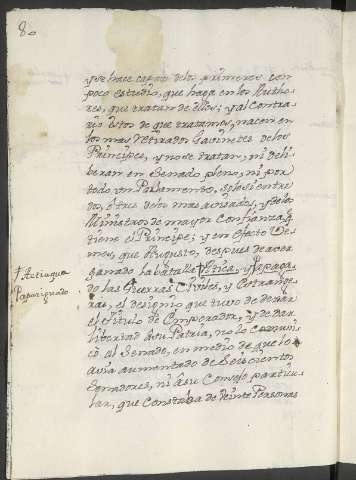 80
y se hace capaz delos primeros con
poco estudio, que haga en los Autho
res, que tratan de ellos; y al contra
rio estos de que tratamos, nacen en
los mas retirados Gavinetes delos
Principes, y no se tratan, ni deli
beran en Senado pleno, ni por
todo un Parlamento, solo si entre
dos, o tres delos mas avisados, y delos
Ministros de mayor Confianza q
tiene el Principe; y en efecto ve
mos, que Augusto, despues de aver
ganado la batalla Actica, y Apaçoa
do las Guerras Civiles, y Estrange
ras, el designio que tuvo de dexar
el titulo de Emperador, y de dar
libertad à su Patria, no lo comuni
cò al Senado, en medio de que lo
avia aumentado de Seiscientos
Senadores, ni à su Consejo particu
lar, que Constaba de Veinte Personas
† Actiaque
Pacoriguado